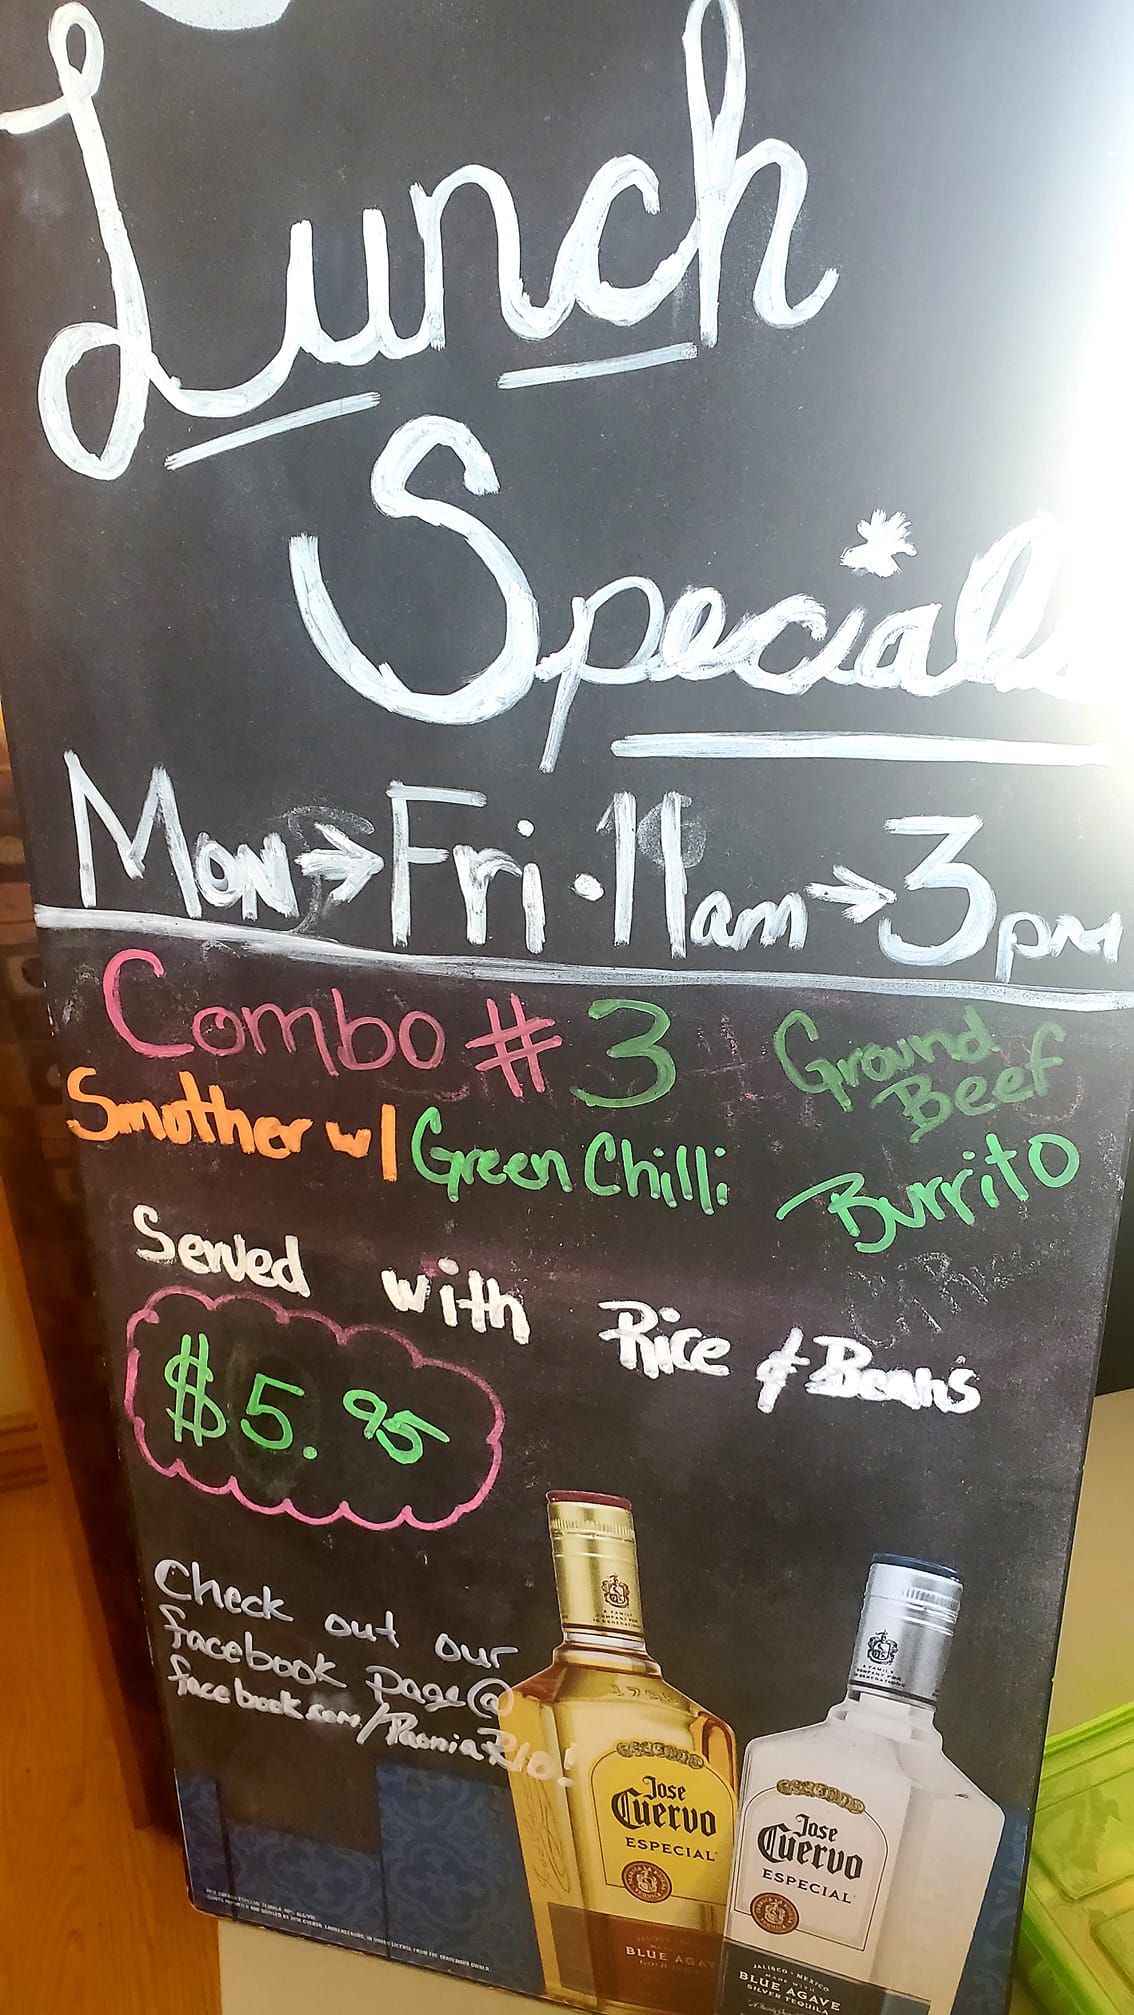 Lunch
Specials
Mon→Fri·11am→3pm
Combo #3
Ground
Beef
Burrito
Smother w/ Green Chilli
Served with Rice & Beans
$5.95
Check out our
facebook page @
facebook.com/PaoniaRIO!
1795
Jose
Cuervo
ESPECIAL
BLUE AGAV
Jose
Cuervo
ESPECIAL
JALISCO · MEXICO
MADE WITH
BLUE AGAVE
SILVER TEQUILA